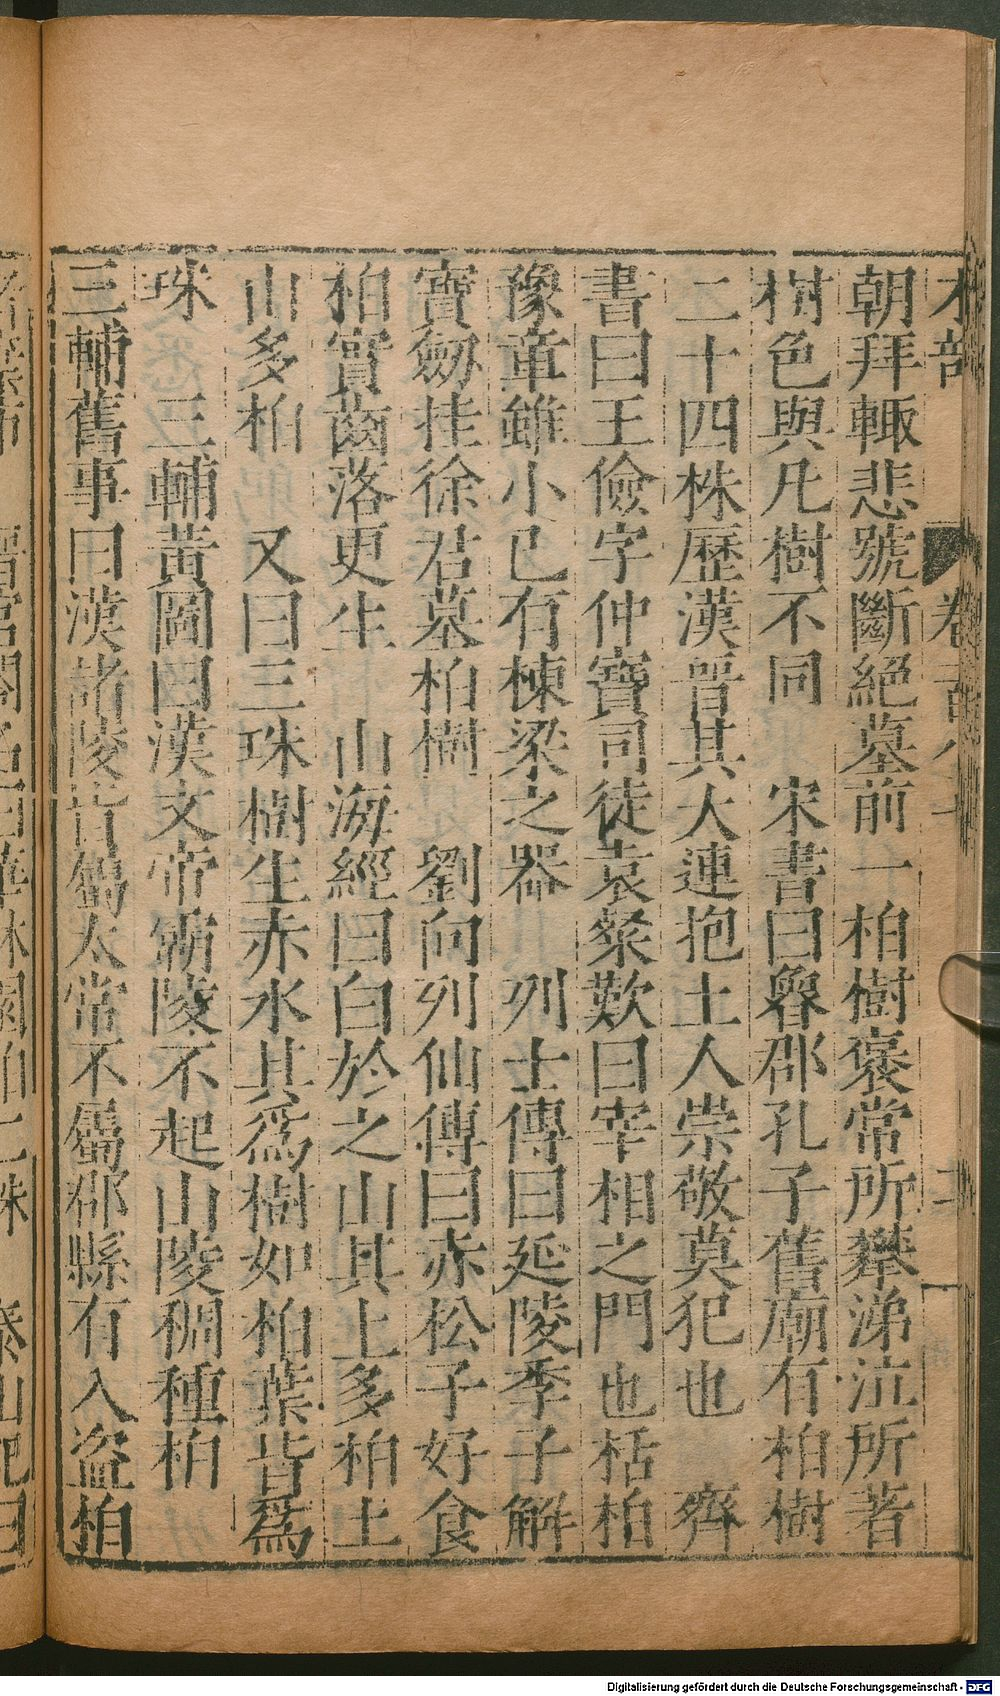 木部 卷 二
朝拜輙悲號斷絕墓前一柏樹褒常所攀涕泣所著
樹色與凡樹不同 宋書曰魯郡孔子舊廟有柏樹
二十四株歷漢晉其大連抱土人崇敬莫犯也 齊
書曰王儉字仲寶司徒袁粲歎曰宰相之門也栝柏
豫章雖小已有棟梁之器 列士傳曰延陵季子解
寶劒挂徐君墓柏樹 劉向列仙傳曰赤松子好食
柏實齒落更生 山海經曰白於之山其上多柏土
山多柏 又曰三珠樹生赤水其爲樹如柏葉皆爲
珠 三輔黃圖曰漢文帝霸陵不起山陵稠種柏
三輔舊事曰漢諸陵皆屬太常不屬郡縣有入盜柏
Digitalisierung gefördert durch die Deutsche Forschungsgemeinschaft - DFG